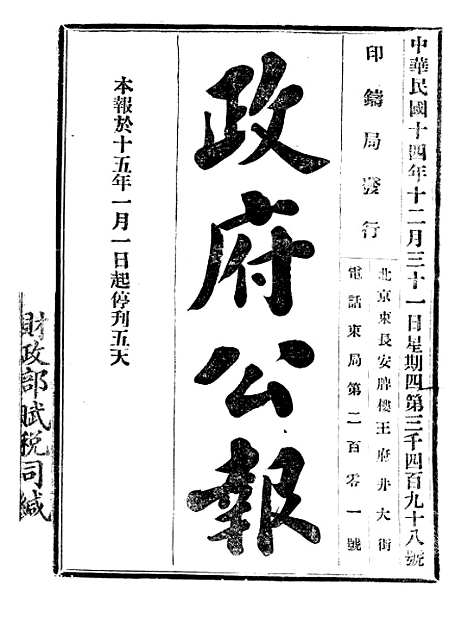 中華民國十四年十二月三十一日星期四第三千四百九十八號
印鑄局發行
北京東長安牌樓王府井大街
電話東局第二百零一號
政府公報
本報於十五年一月一日起停刊五天
財政部賦稅司緘